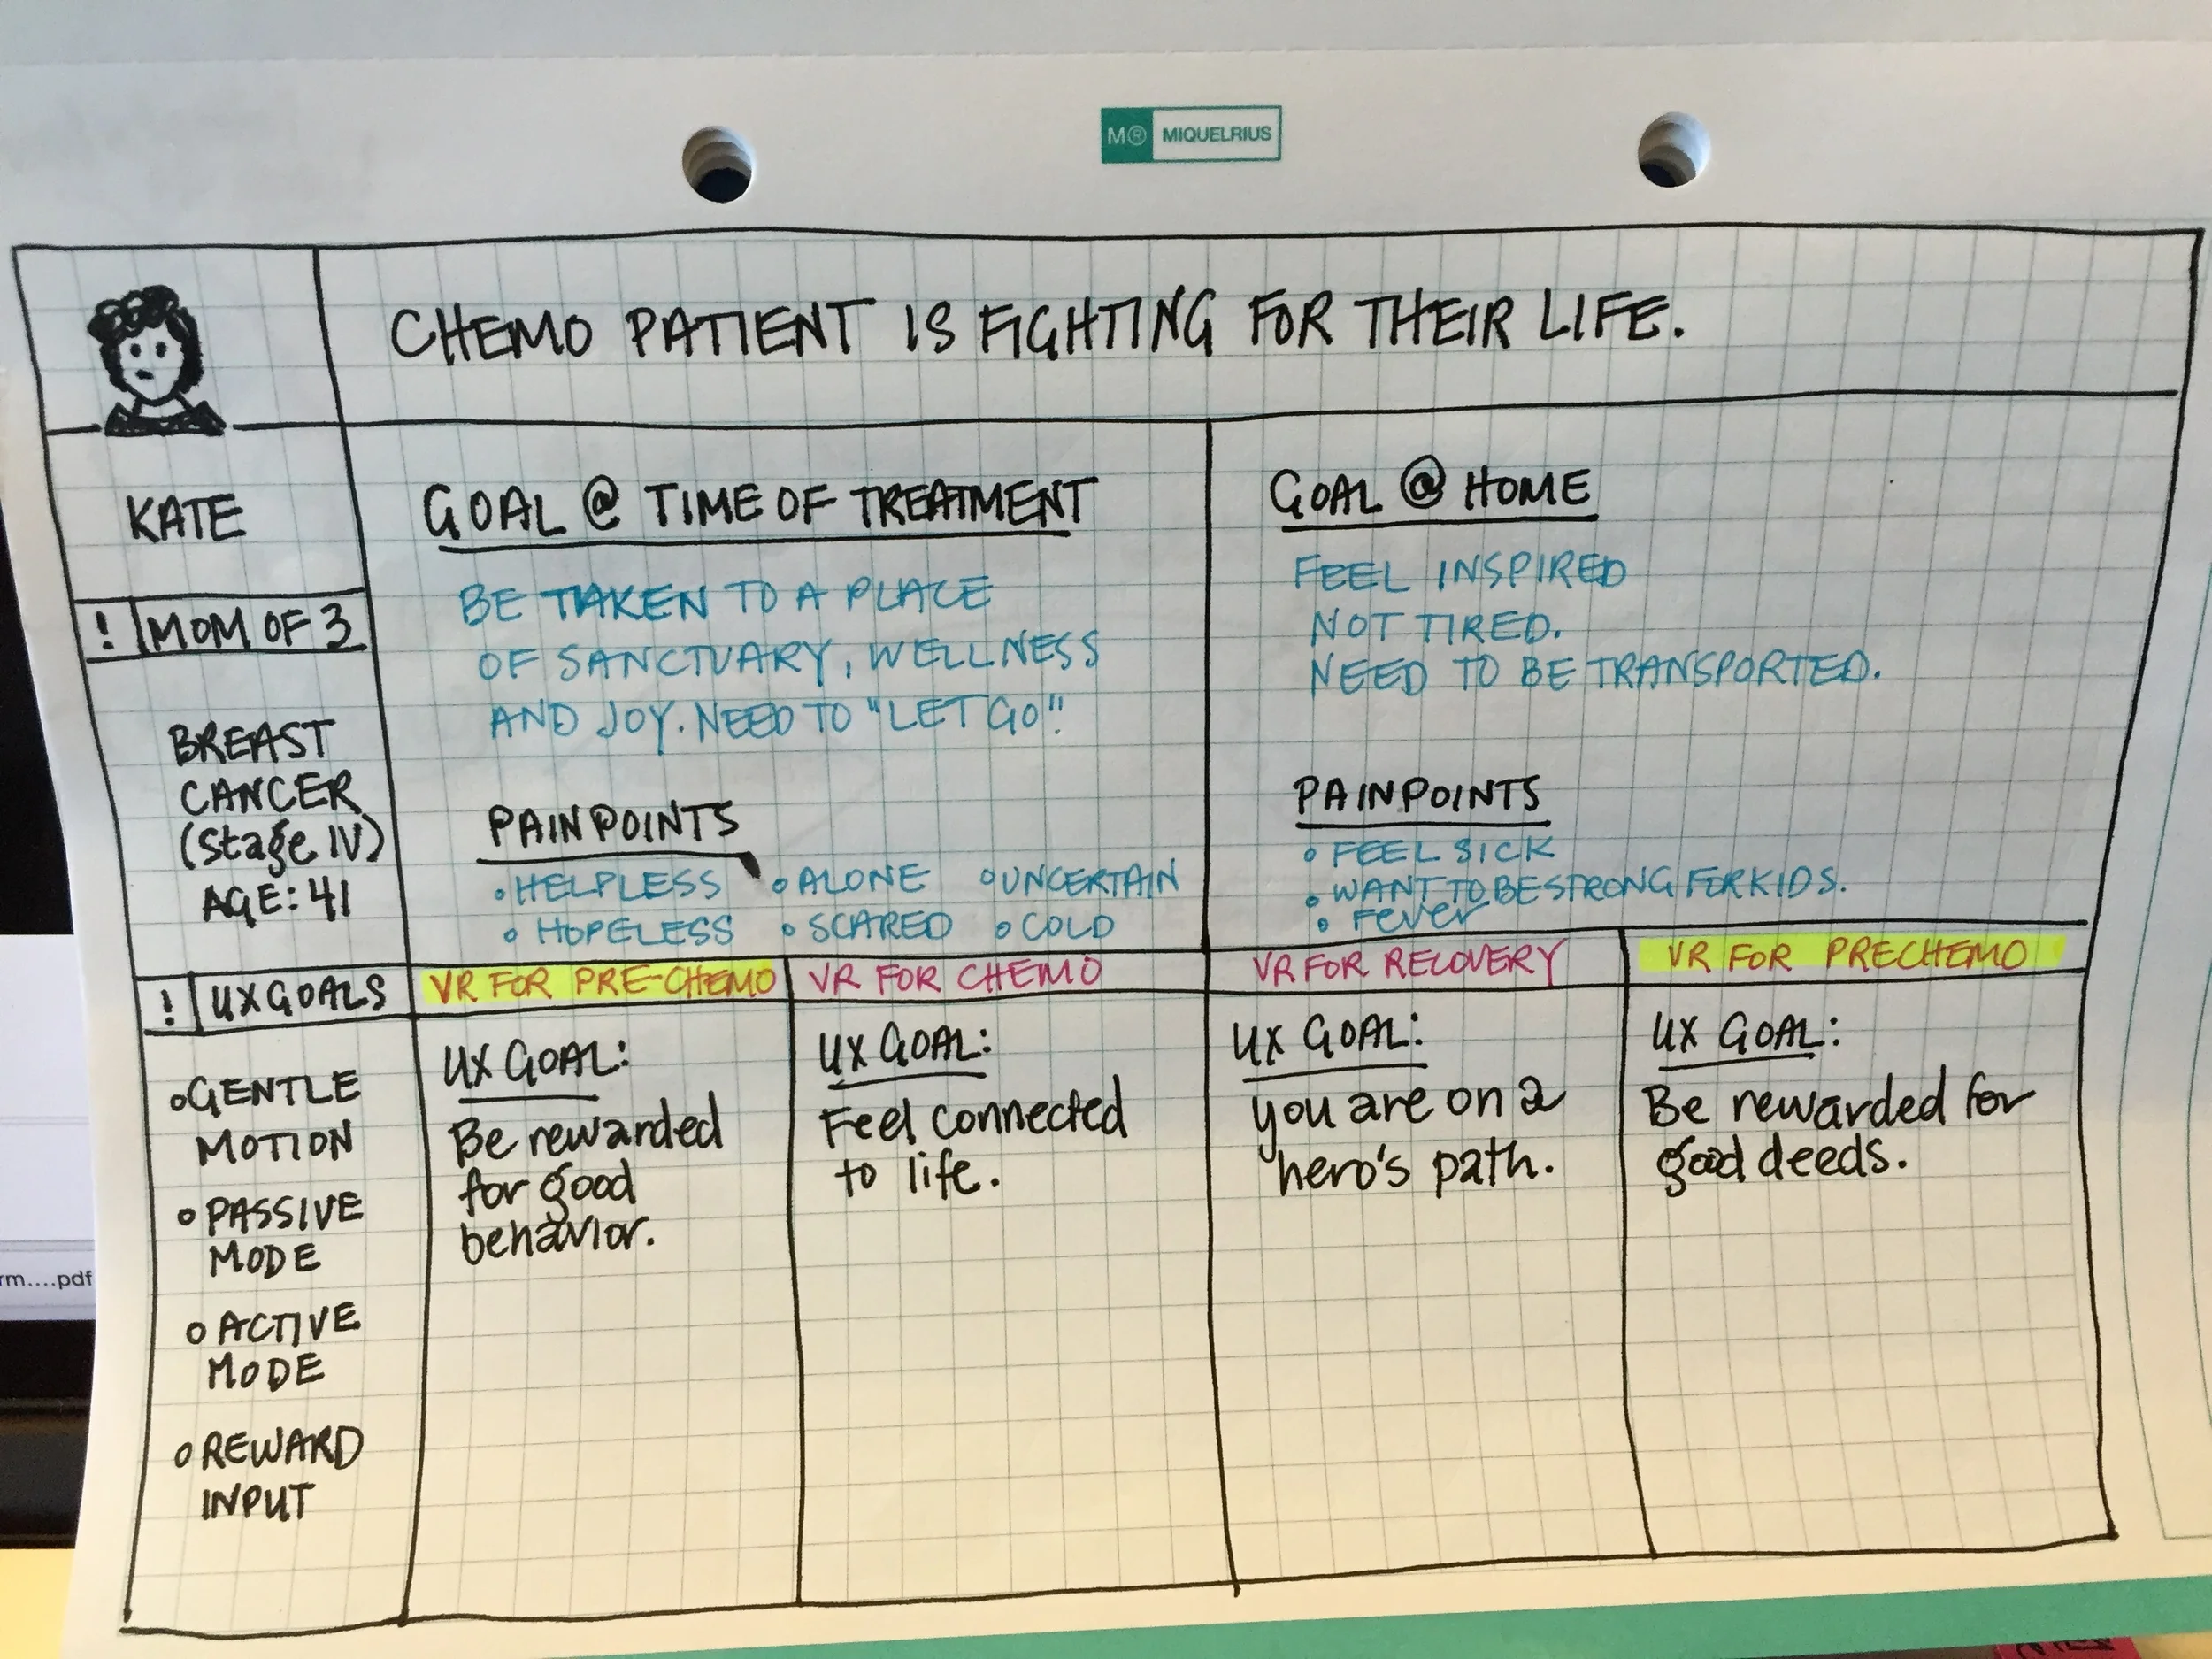 M® MIQUELRIUS
CHEMO PATIENT IS FIGHTING FOR THEIR LIFE.
KATE
! MOM OF 3
BREAST
CANCER
(Stage IV)
AGE: 41
GOAL @ TIME OF TREATMENT
BE TAKEN TO A PLACE
OF SANCTUARY, WELLNESS
AND JOY. NEED TO "LET GO".
PAINPOINTS
• HELPLESS • ALONE • UNCERTAIN
• HOPELESS • SCARED • COLD
GOAL @ HOME
FEEL INSPIRED
NOT TIRED.
NEED TO BE TRANSPORTED.
PAINPOINTS
• FEEL SICK
• WANT TO BE STRONG FOR KIDS.
• Fever
! UX GOALS
• GENTLE
MOTION
• PASSIVE
MODE
• ACTIVE
MODE
• REWARD
INPUT
VR FOR PRE-CHEMO
UX GOAL:
Be rewarded
for good
behavior.
VR FOR CHEMO
UX GOAL:
Feel connected
to life.
VR FOR RECOVERY
UX GOAL:
you are on a
hero's path.
VR FOR PRECHEMO
UX GOAL:
Be rewarded for
good deeds.
rm....pdf